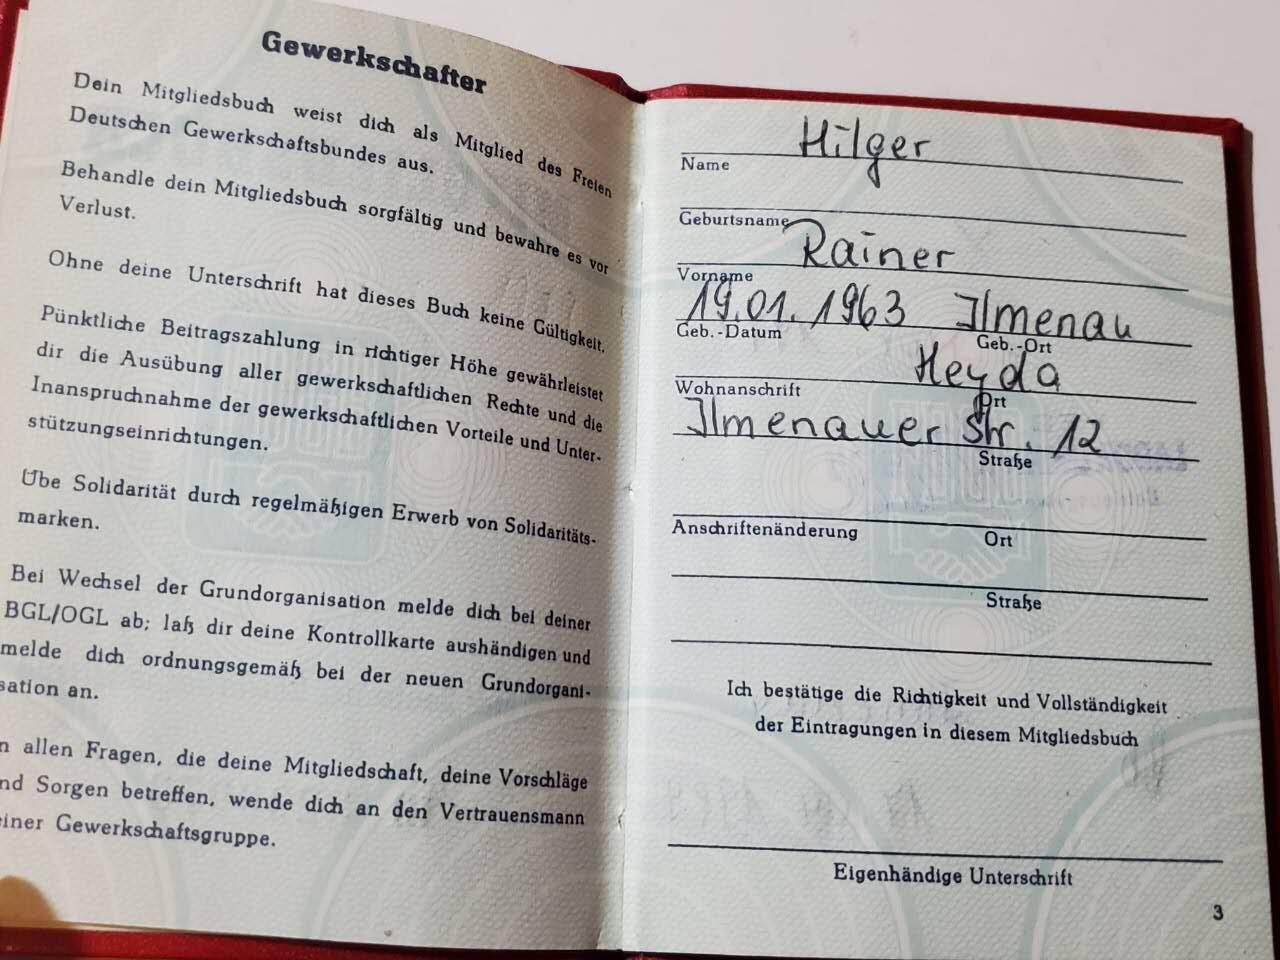 Gewerkschafter
Dein Mitgliedsbuch weist dich als Mitglied des Freien
Deutschen Gewerkschaftsbundes aus.
Behandle dein Mitgliedsbuch sorgfältig und bewahre es vor
Verlust.
Ohne deine Unterschrift hat dieses Buch keine Gültigkeit.
Pünktliche Beitragszahlung in richtiger Höhe gewährleistet
dir die Ausübung aller gewerkschaftlichen Rechte und die
Inanspruchnahme der gewerkschaftlichen Vorteile und Unter-
stützungseinrichtungen.
Übe Solidarität durch regelmäßigen Erwerb von Solidaritäts-
marken.
Bei Wechsel der Grundorganisation melde dich bei deiner
BGL/OGL ab; laß dir deine Kontrollkarte aushändigen und
melde dich ordnungsgemäß bei der neuen Grundorgani-
sation an.
n allen Fragen, die deine Mitgliedschaft, deine Vorschläge
nd Sorgen betreffen, wende dich an den Vertrauensmann
einer Gewerkschaftsgruppe.
Hilger
Name
Geburtsname
Rainer
Vorname
19.01.1963 Ilmenau
Geb.-Datum Geb.-Ort
Heyda
Wohnanschrift Ort
Ilmenauer Str. 12
Straße
Anschriftenänderung Ort
Straße
Ich bestätige die Richtigkeit und Vollständigkeit
der Eintragungen in diesem Mitgliedsbuch
Eigenhändige Unterschrift
3